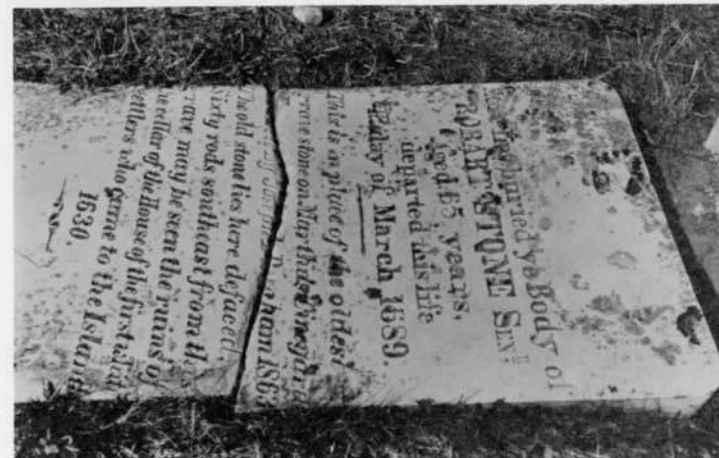 buried ye Body of
ROBART STONE SENR
aged 65 years,
departed this life
day of March 1689.
This is a place of the oldest
grave stone on Marthas Vineyard
1863
The old stone lies here defaced.
Sixty rods southeast from this
grave may be seen the ruins of
the cellar of the House of the first
settlers who came to the Island
1630.